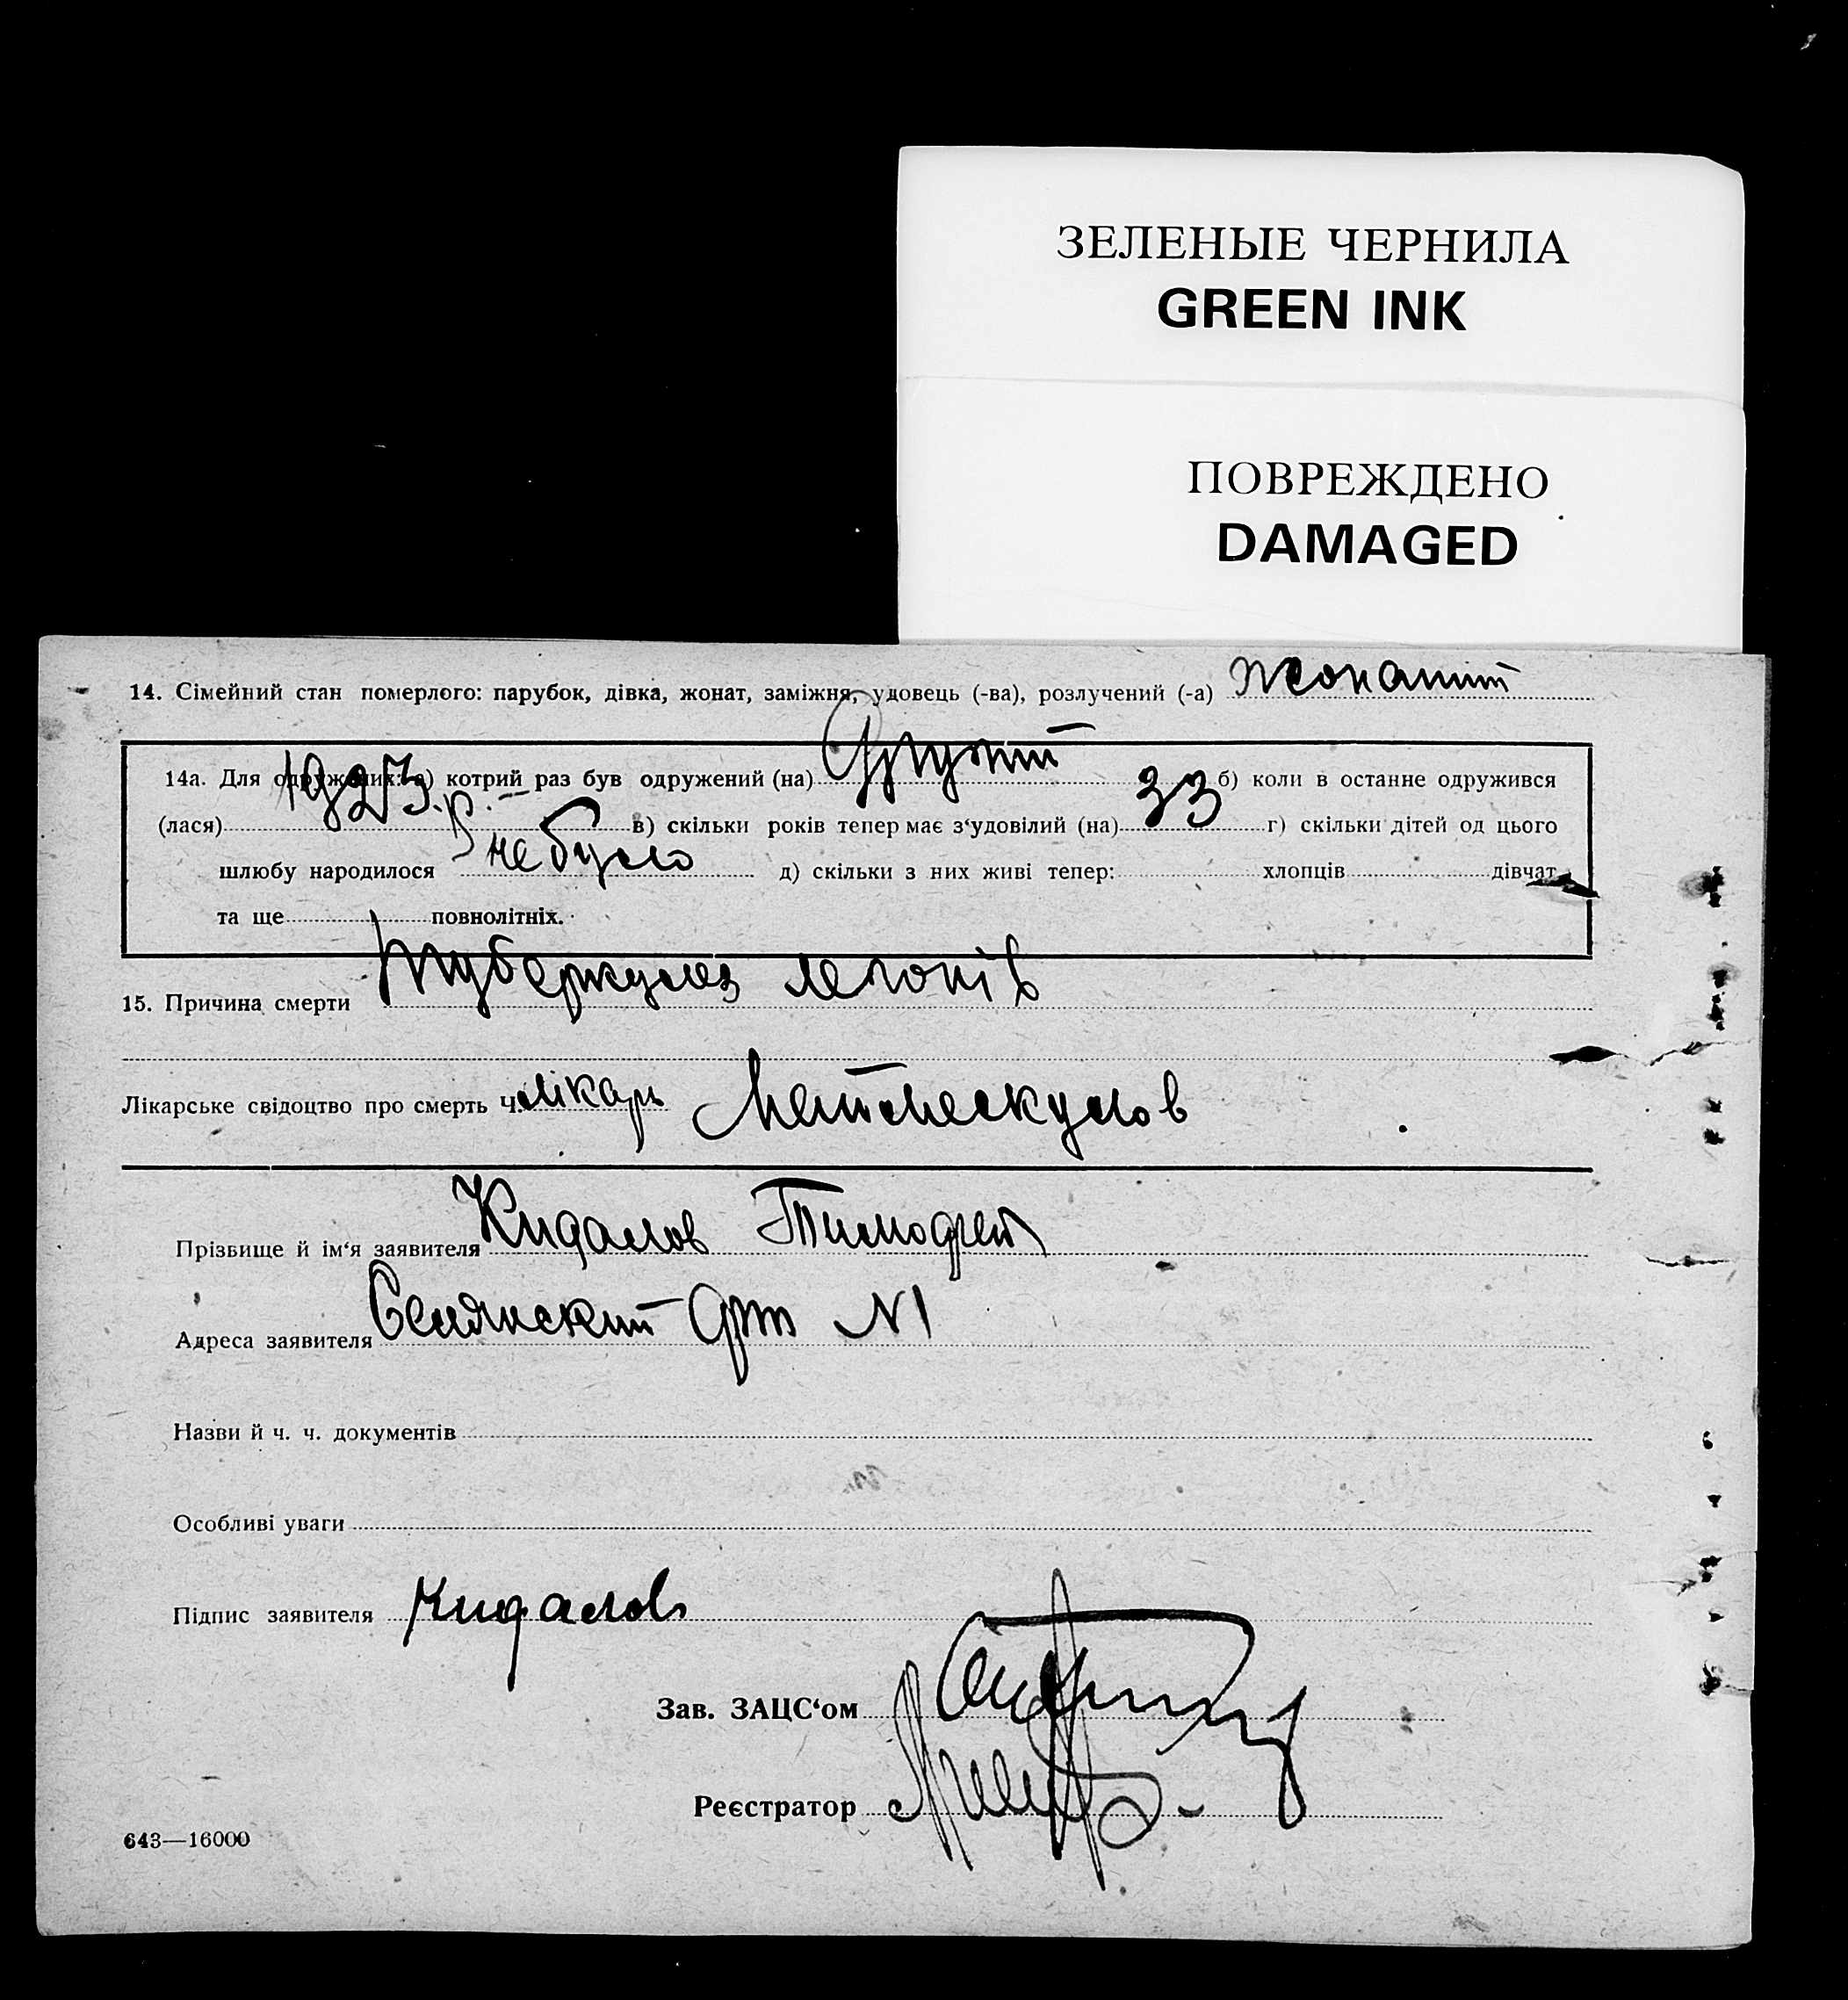 ЗЕЛЕНЫЕ ЧЕРНИЛА
GREEN INK
ПОВРЕЖДЕНО
DAMAGED
14. Сімейний стан померлого: парубок, дівка, жонат, заміжня, удовець (-ва), розлучений (-а) жонатий
14а. Для одружених: а) котрий раз був одружений (на) Другий б) коли в останнє одружився
(лася) 1923 р. в) скільки років тепер має з‘удовілий (на) 33 г) скільки дітей од цього
шлюбу народилося не було д) скільки з них живі тепер: хлопців дівчат
та ще повнолітніх.
15. Причина смерти Туберкулез легонів
Лікарське свідоцтво про смерть Ч. лікарь
Прізвище й ім‘я заявителя Кидалов Тимофей
Адреса заявителя Селянский № 1
Назви й ч. ч. документів
Особливі уваги
Підпис заявителя Кидалов
Зав. ЗАЦС‘ом
Реєстратор
643—16000